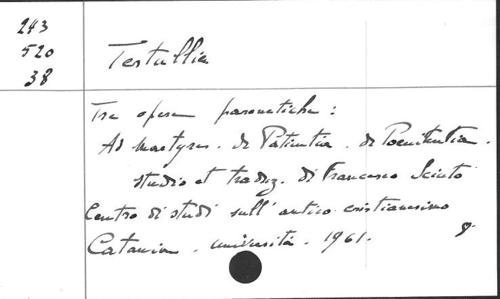 243
520
38
Tertullia
Tre opere parenetiche :
Ad Martyres . de Patientia . de Poenitentia .
studio et traduz. di Francesco Sciuto
Centro di studi sull' antico cristianesimo
Catania . università . 1961.